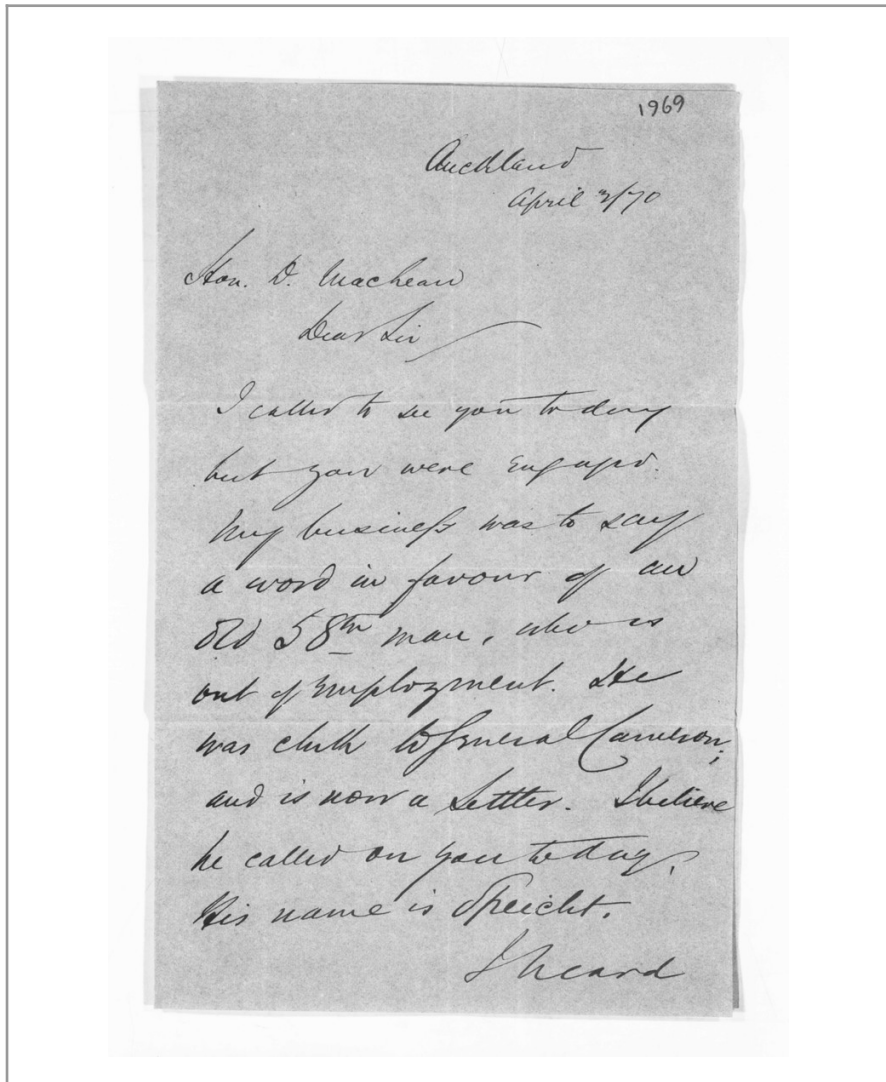 1969
Auckland
April 3/70
Hon. D. MacLean
Dear Sir
I called to see you to day
but you were engaged.
My business was to say
a word in favour of an
old 58th man, who is
out of employment. He
was clerk to General Cameron;
and is now a Settler. I believe
he called on you to day.
His name is Speight.
I heard